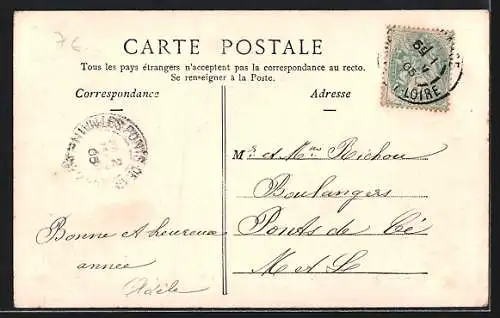 7€
CARTE POSTALE
Tous les pays étrangers n'acceptent pas la correspondance au recto.
Se renseigner à la Poste.
Correspondance
Adresse
LOIRE
LES PONTS DE CÉ
Mr et Mme Richou
Boulangers
Ponts de Cé
M et L
Bonne et heureuse
année
Adèle